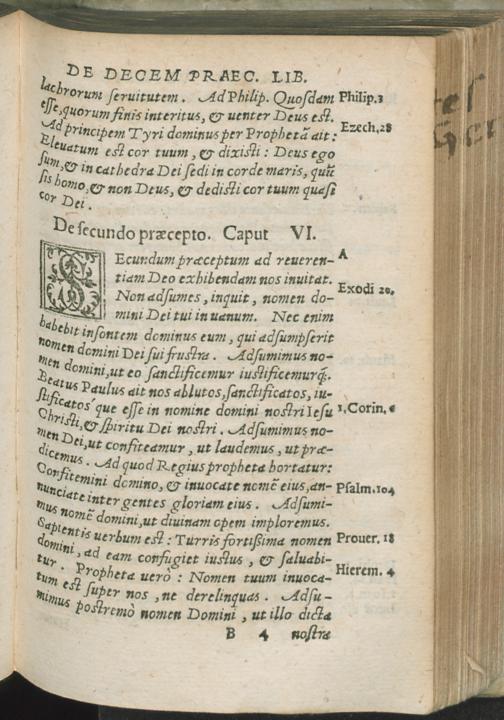 DE DECEM PRAEC. LIB.
lachrorum seruitutem. Ad Philip. Quosdam Philip.3
esse, quorum finis interitus, & uenter Deus est.
Ad principem Tyri dominus per Prophetã ait: Ezech.28
Eleuatum est cor tuum, & dixisti: Deus ego
sum, & in cathedra Dei sedi in corde maris, quũ
sis homo, & non Deus, & dedisti cor tuum quasi
cor Dei.
De secundo præcepto. Caput VI.
SEcundum præceptum ad reueren- A
tiam Deo exhibendam nos inuitat.
Non adsumes, inquit, nomen do- Exodi 20.
mini Dei tui in uanum. Nec enim
habebit insontem dominus eum, qui adsumpserit
nomen domini Dei sui frustra. Adsumimus no-
men domini, ut eo sanctificemur iustificemurq́;.
Beatus Paulus ait nos ablutos, sanctificatos, iu-
stificatos que esse in nomine domini nostri Iesu 1.Corin. 6
Christi, & spiritu Dei nostri. Adsumimus no-
men Dei, ut confiteamur, ut laudemus, ut præ-
dicemus. Ad quod Regius propheta hortatur:
Confitemini domino, & inuocate nomẽ eius, an- Psalm.104
nunciate inter gentes gloriam eius. Adsumi-
mus nomẽ domini, ut diuinam opem imploremus.
Sapientis uerbum est: Turris fortißima nomen Prouer. 18
domini, ad eam confugiet iustus, & saluabi-
tur. Propheta uerò: Nomen tuum inuoca- Hierem. 4
tum est super nos, ne derelinquas. Adsu-
mimus postremò nomen Domini, ut illo dicta
B 4 nostra